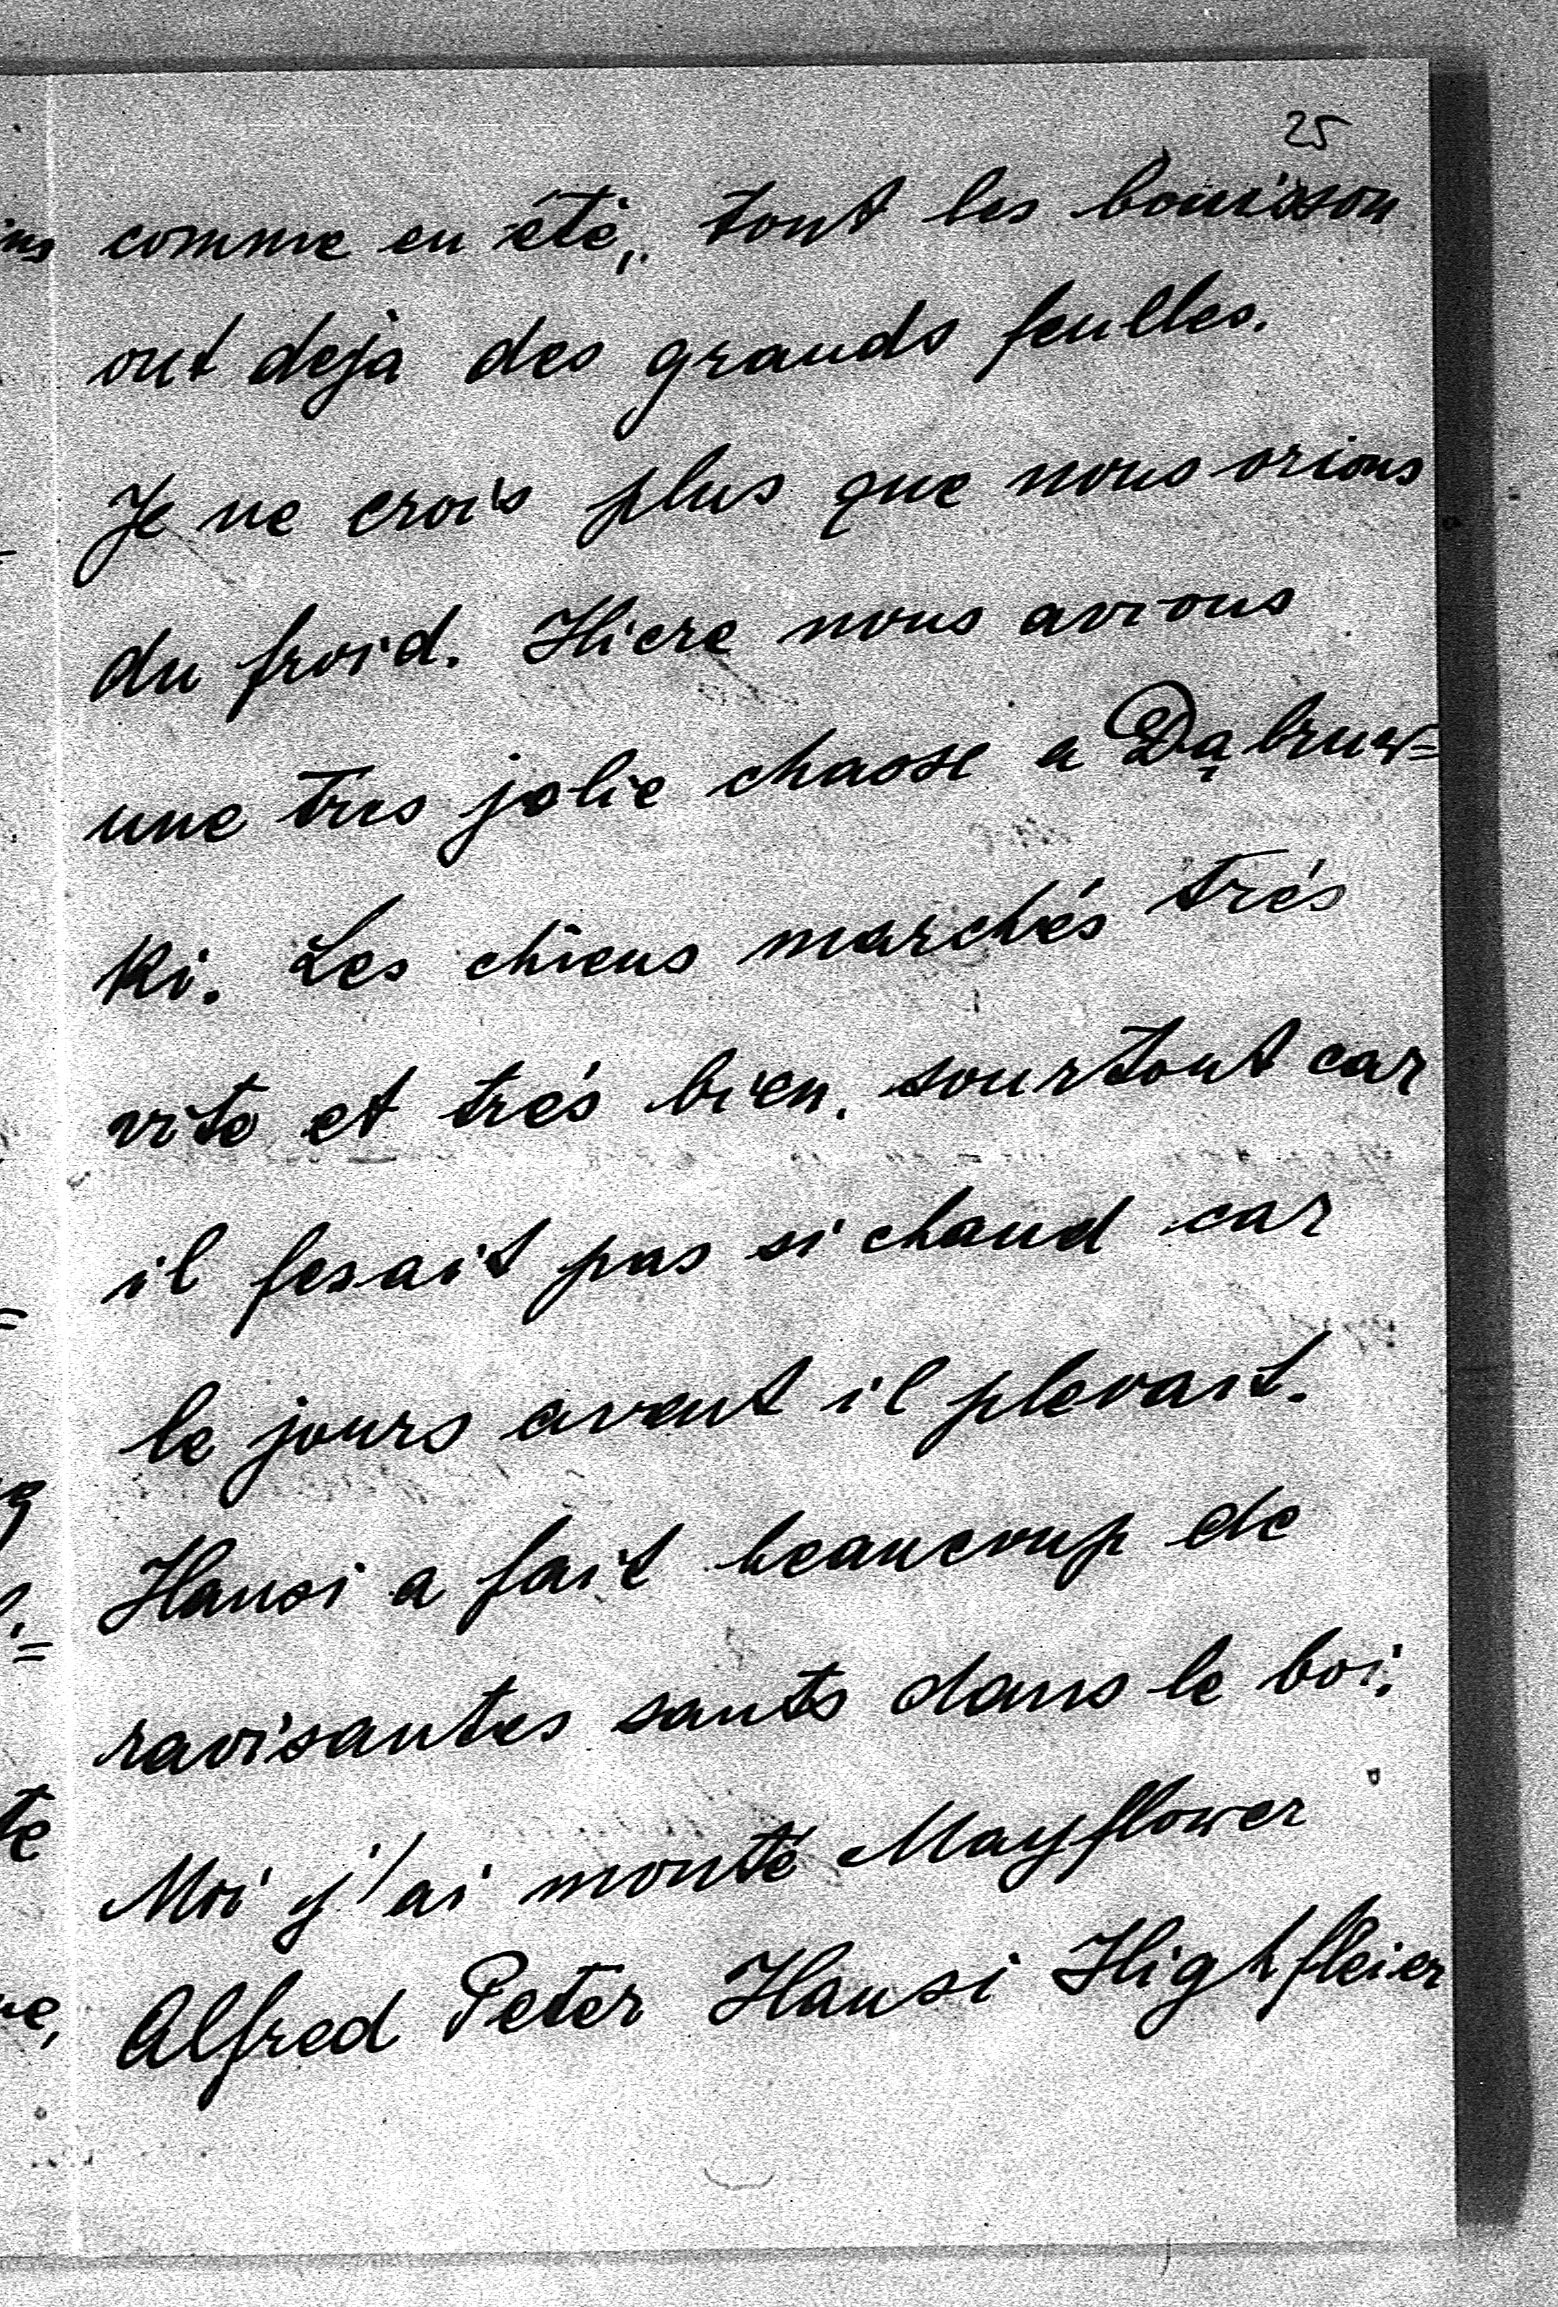 25
comme en été, tout les bouisson
ont dejà des grands feulles.
Je ne crois plus que nous orions
du froid. Hiere nous avions
une tres jolie chasse a Dąbruw=
ki. Les chiens marchés trés
vite et trés bien, sourtout car
il fesait pas si chaud car
le jours avent il plevait.
Hansi a fait beaucoup de
ravisantes sauts dans le boi.
Moi j'ai monté Mayflower
Alfred Peter Hansi Highfleier